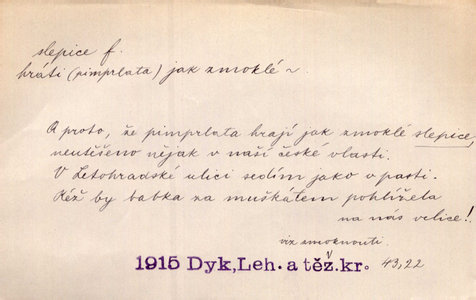 slepice f.
hráti (pimprlata) jak zmoklé ~
A proto, že pimprlata hrají jak zmoklé slepice,
neutěšeno nějak v naší české vlasti.
V Letohradské ulici sedím jako v pasti.
Kéž by babka za muškátem pohlížela
na nás velice!
viz zmoknouti
1915 Dyk, Leh. a těž. kr. 43,22